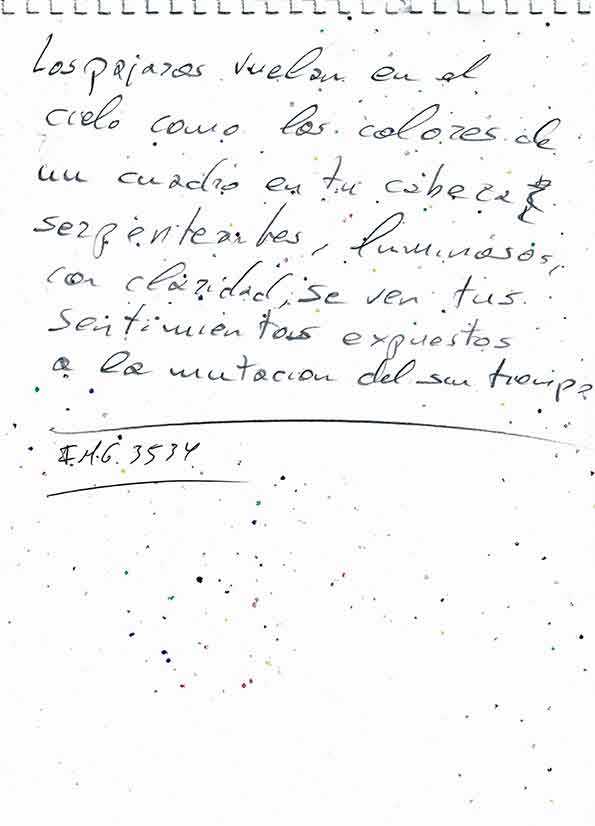 Los pajaros vuelan en el
cielo como los colores de
un cuadro en tu cabeza
serpenteantes, luminosos,
con claridad, se ven tus
sentimientos expuestos
a la mutacion del sin
I.M.G. 3534